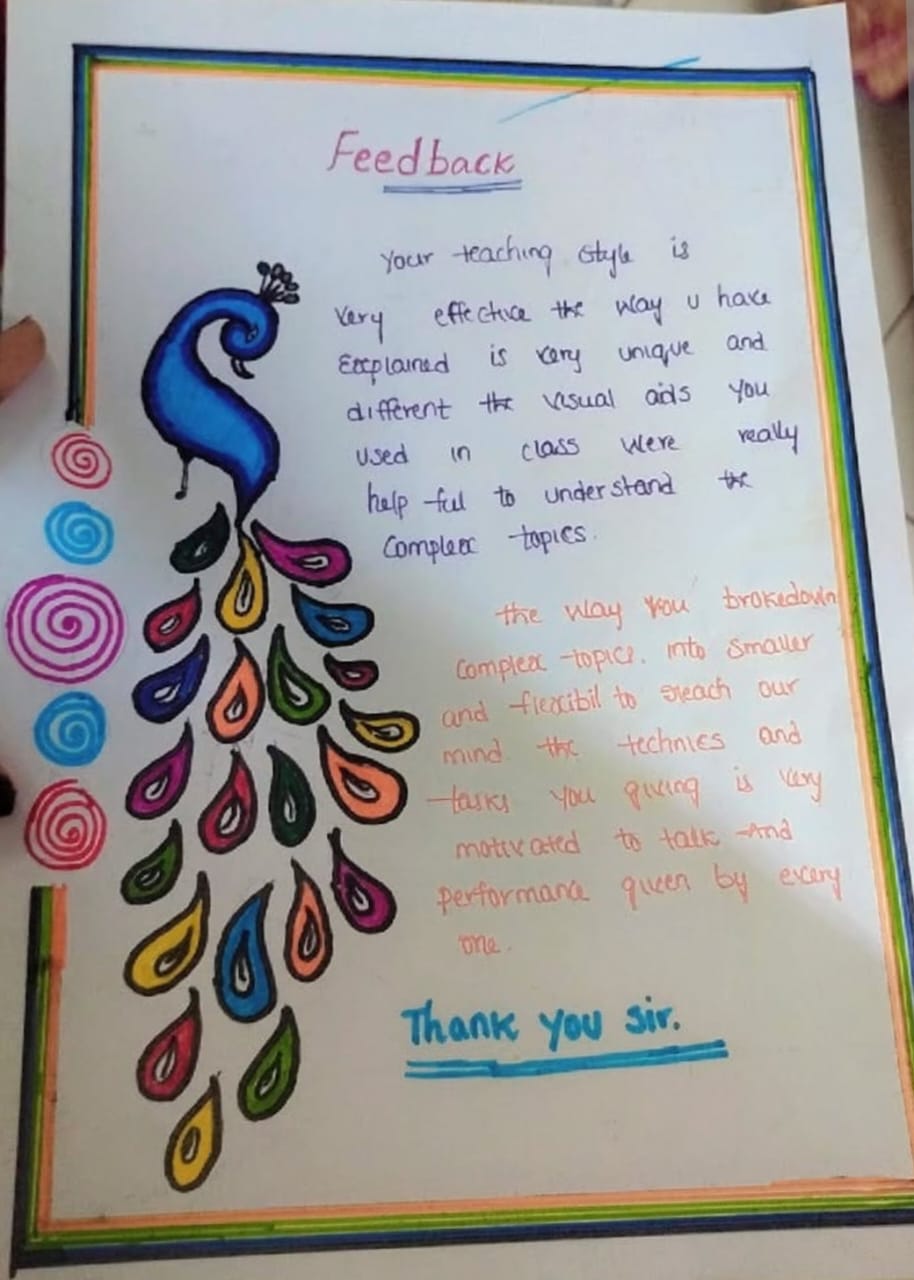 Feedback
Your teaching style is
very effective the way u have
Explained is very unique and
different the visual aids you
used in class were really
help ful to understand the
Complex topics.
the way you brokedown
Complex topics. into smaller
and flexibil to reach our
mind. the technies and
tasks you giving is very
motivated to talk And
performance given by every
one.
Thank you sir.